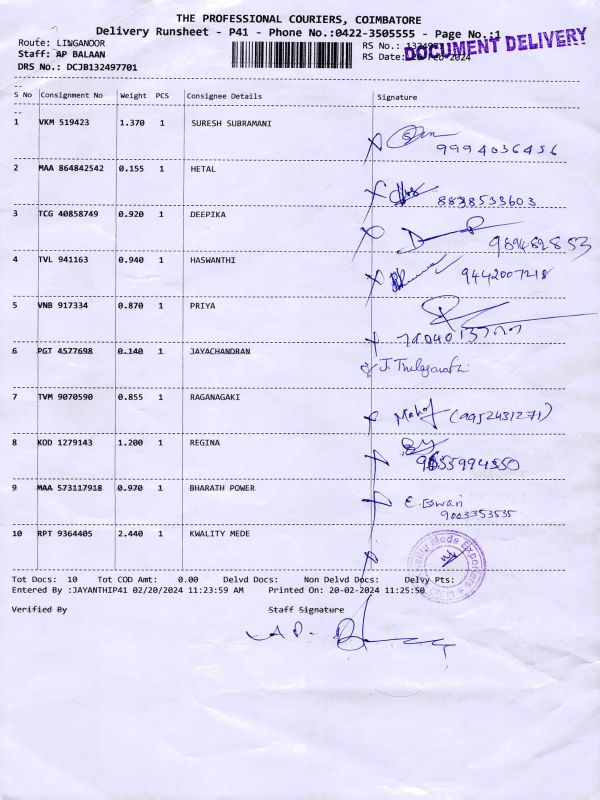 THE PROFESSIONAL COURIERS, COIMBATORE
Delivery Runsheet - P41 - Phone No.:0422-3505555 - Page No.:1
Route: LINGANOOR
RS No.:
DOCUMENT DELIVERY
Staff: AP BALAAN
RS Date: 20-Feb-2024
DRS No.: DCJB132497701
S No Consignment No Weight PCS Consignee Details Signature
1 VKM 519423 1.370 1 SURESH SUBRAMANI
9994036456
2 MAA 864842542 0.155 1 HETAL
8838533603
3 TCG 40858749 0.920 1 DEEPIKA
4 TVL 941163 0.940 1 HASWANTHI
9442007218
5 VNB 917334 0.870 1 PRIYA
6 PGT 4577698 0.140 1 JAYACHANDRAN
7 TVM 9070590 0.855 1 RAGANAGAKI
(9952431271)
8 KOD 1279143 1.200 1 REGINA
9655994550
9 MAA 573117918 0.970 1 BHARATH POWER
E. Eswari
9003353535
10 RPT 9364405 2.440 1 KWALITY MEDE
Tot Docs: 10 Tot COD Amt: 0.00 Delvd Docs: Non Delvd Docs: Delvy Pts:
Entered By :JAYANTHIP41 02/20/2024 11:23:59 AM Printed On: 20-02-2024 11:25:50
Verified By Staff Signature